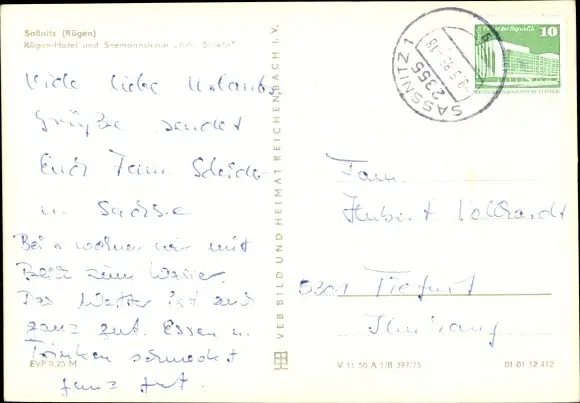 Saßnitz (Rügen)
Rügen-Hotel und Seemannshaus
Viele liebe Urlaubs
grüße sendet
Euch Fam.
u. Sachse
wohnen wir mit
zum Wasser.
Das Wetter ist
ganz gut. Essen u.
Trinken schmeckt
ganz gut.
EVP 0,25 M
VEB BILD UND HEIMAT REICHENBACH I. V.
SASSNITZ 1
2355
Palast der Republik
10
Fam.
Hubert
5301 Tiefurt
V 11 50 A 1/B 397/75
01 01 12 412